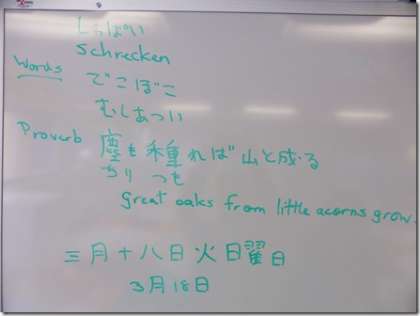 Schrecken
Words でこぼこ
むしあつい
Proverb 塵も種れば山と成る
ちり つも
great oaks from little acorns grow.
三月十八日火日曜日
3月18日